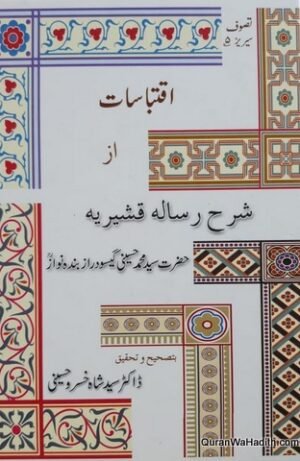 تصوف
سیریز ۵
اقتباسات
از
شرح رسالہ قشیریہ
حضرت سید محمد حسینی گیسودراز بندہ نوازؒ
بتصحیح و تحقیق
ڈاکٹر سید شاہ خسرو حسینی
QuranWaHadith.com